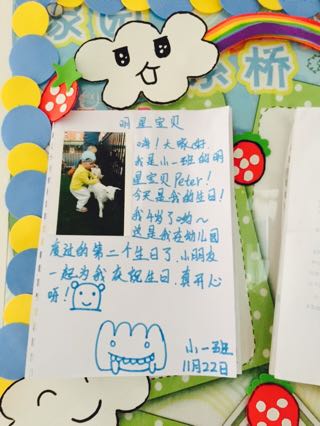 家园
桥
明星宝贝
嗨！大家好
我是小一班的明
星宝贝Peter！
今天是我的生日！
我4岁了呦～
这是我在幼儿园
度过的第二个生日了，小朋友
一起为我庆祝生日，真开心
呀！
小一班
11月22日